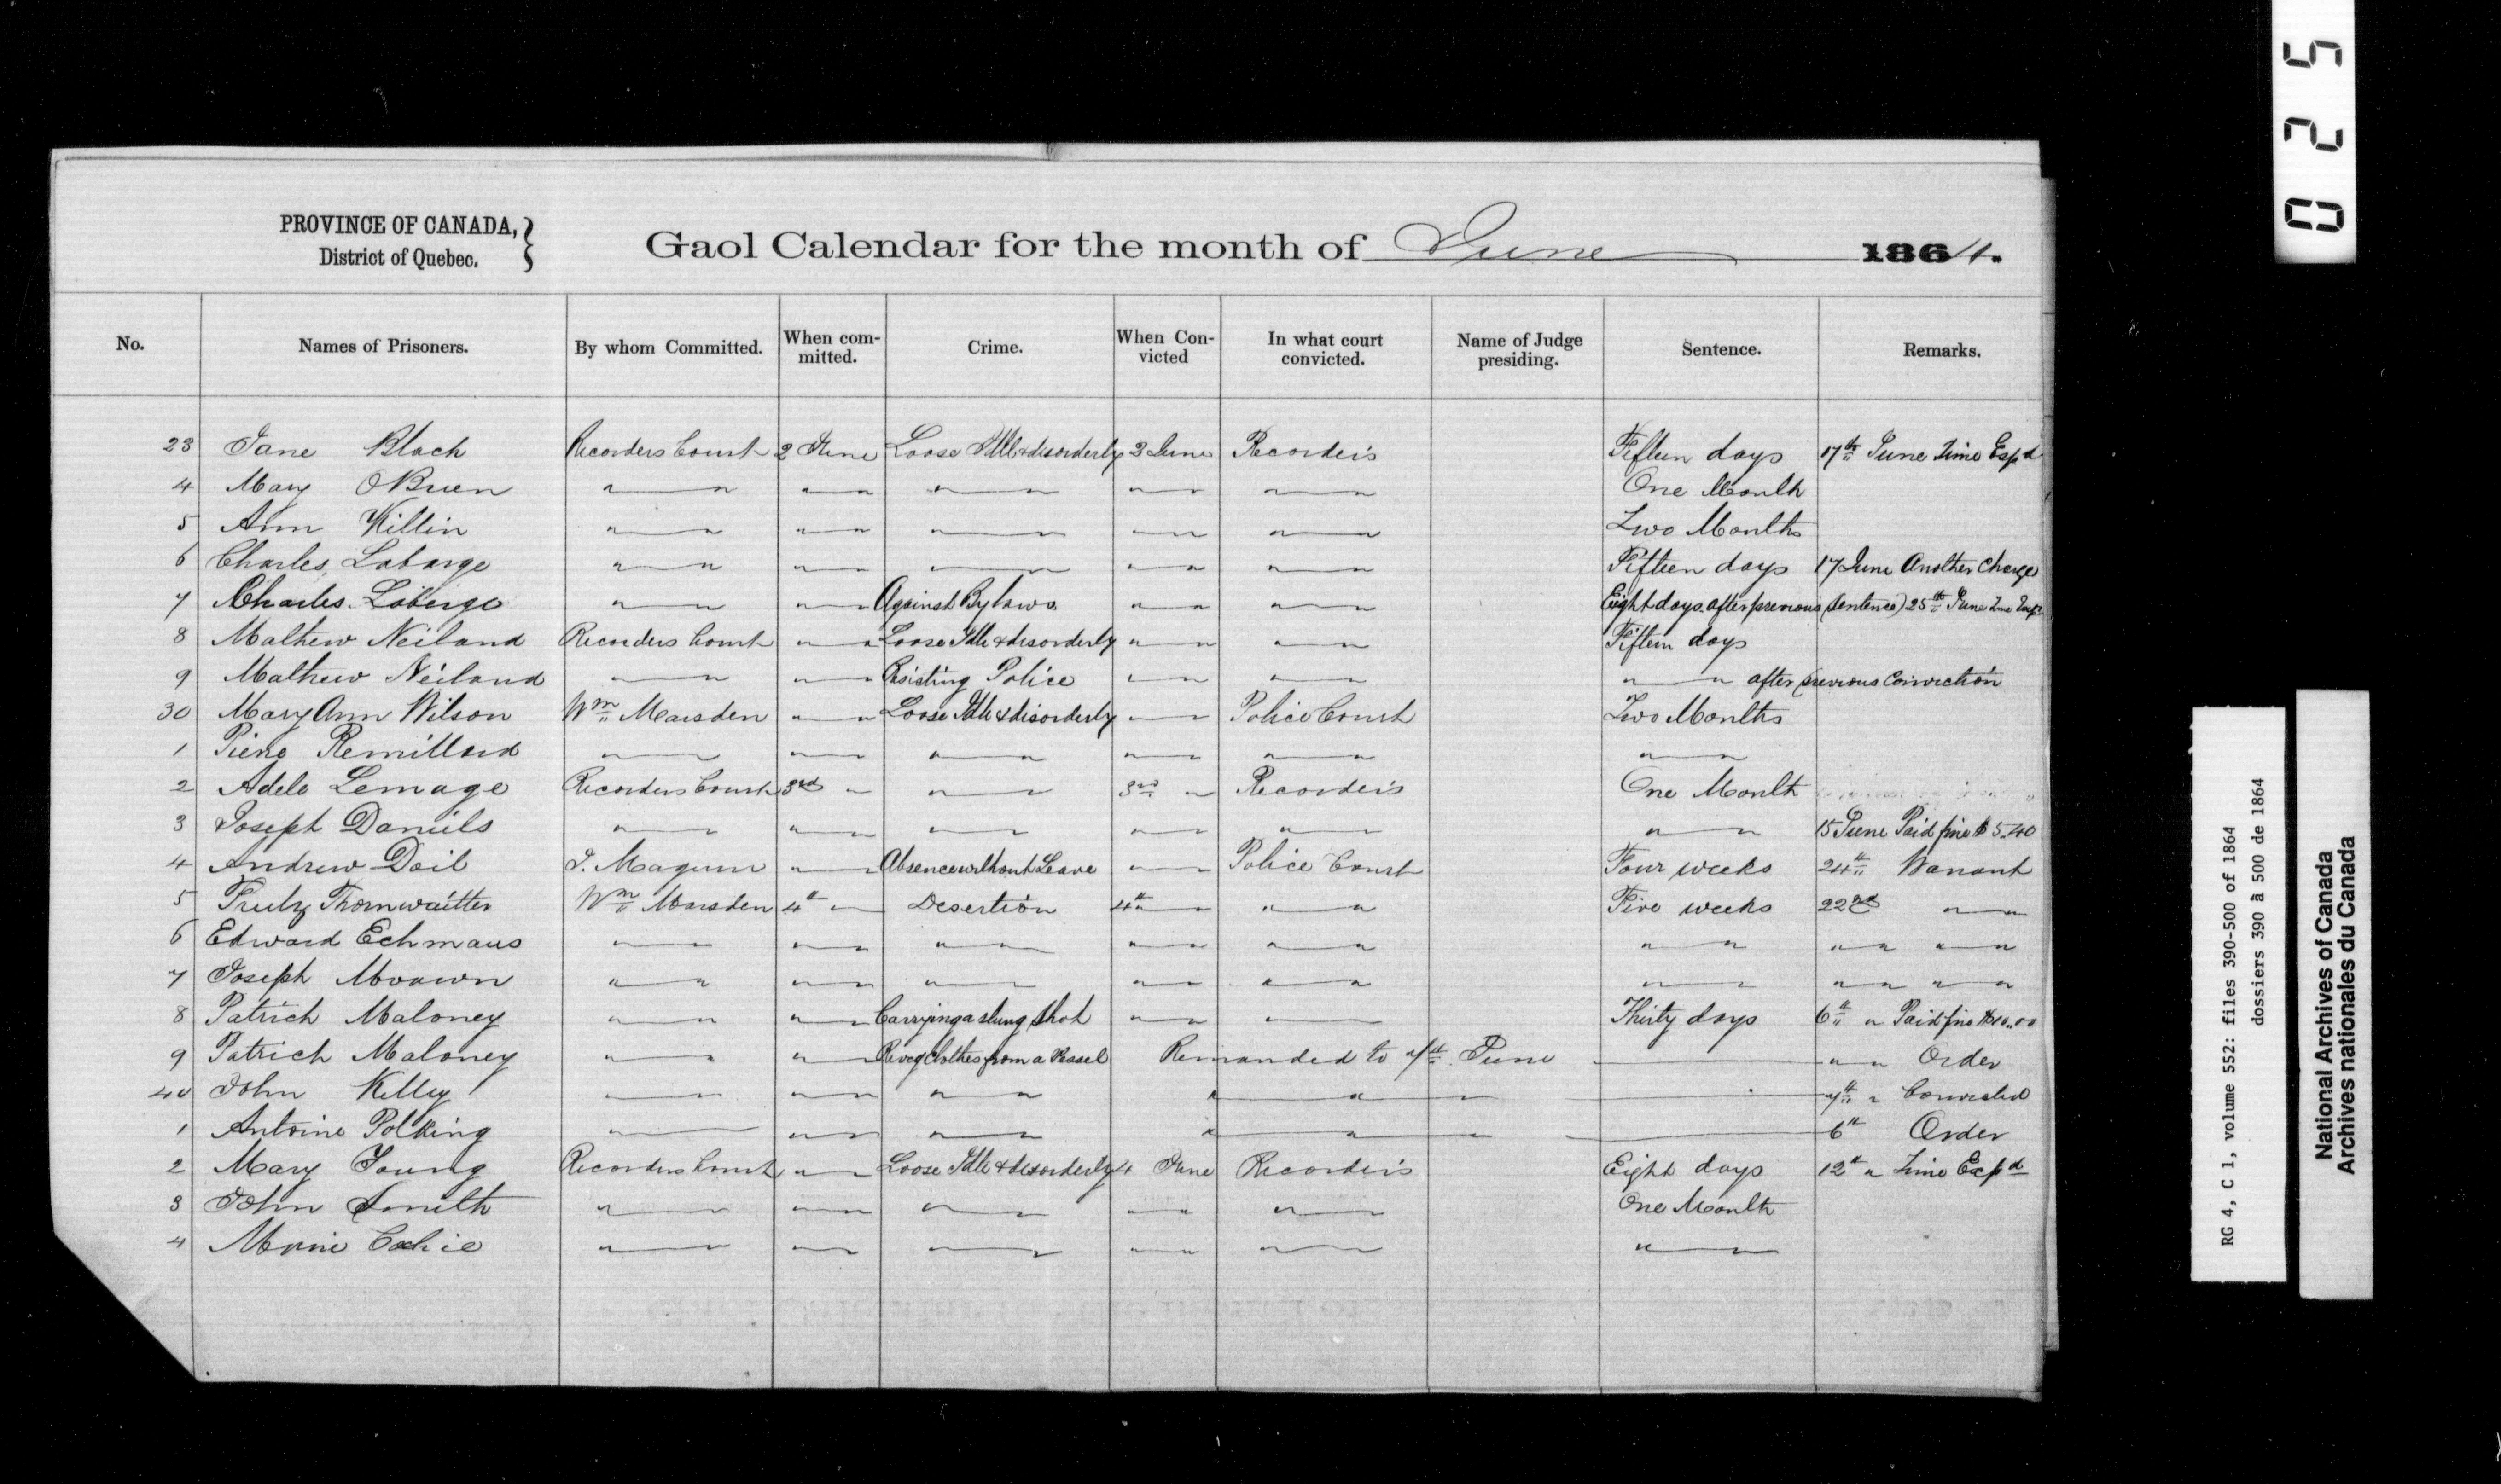 PROVINCE OF CANADA,
District of Quebec.
Gaol Calendar for the month of June 1864.
No. Names of Prisoners. By whom Committed. When committed. Crime. When Convicted In what court convicted. Name of Judge presiding. Sentence. Remarks.
23 Jane Black Recorders Court 2 June Loose Idle & disorderly 2 June Recorders Fifteen days 17th June Time Expd
4 Mary OBrien " " " " " " " " " " One Month
5 Ann Killin " " " " " " " " " " Two Months
6 Charles Labarge " " " " " " " " " " Fifteen days 17 June Another Charge
7 Charles Laberge " " " " Against Bylaws " " " " Eight days after previous (sentence) 25th June Time Expd
8 Mathew Neiland Recorders Court " " Loose Idle & disorderly " " " " Fifteen days
9 Mathew Neiland " " " " Resisting Police " " " " " " after previous Conviction
30 Mary Ann Wilson Wm Marsden " " Loose Idle & disorderly " " Police Court Two Months
1 Pierre Remillard " " " " " " " " " " " "
2 Adele Lemage Recorders Court 3rd " " " 3rd " Recorders One Month
3 Joseph Daniels " " " " " " " " " " " " 15 June Paid fine $5.40
4 Andrew Doil J. Maguire " " Absence without Leave " " Police Court Four weeks 24th Warrant
5 Thornwaitter Wm Marsden 4th " Desertion 4th " " " Five weeks 22nd " "
6 Edward Echmaus " " " " " " " " " " " " " " " "
7 Joseph " " " " " " " " " " " " " " " "
8 Patrick Maloney " " " " Carrying a slung shot " " " " Thirty days 6th " Paid fine $10.00
9 Patrick Maloney " " " " Recvg Clothes from a Vessel Remanded to 7th June " " Order
40 John Kelley " " " " " " " " " 7th " Convicted
1 Antoine Polking " " " " " " " " " 6th Order
2 Mary Young Recorders Court " " Loose Idle & disorderly 4 June Recorders Eight days 12th " Time Expd
3 John Smith " " " " " " " " " " One Month
4 " " " " " " " " " " " "
025
RG 4, C 1, volume 552: files 390-500 of 1864
dossiers 390 à 500 de 1864
National Archives of Canada
Archives nationales du Canada